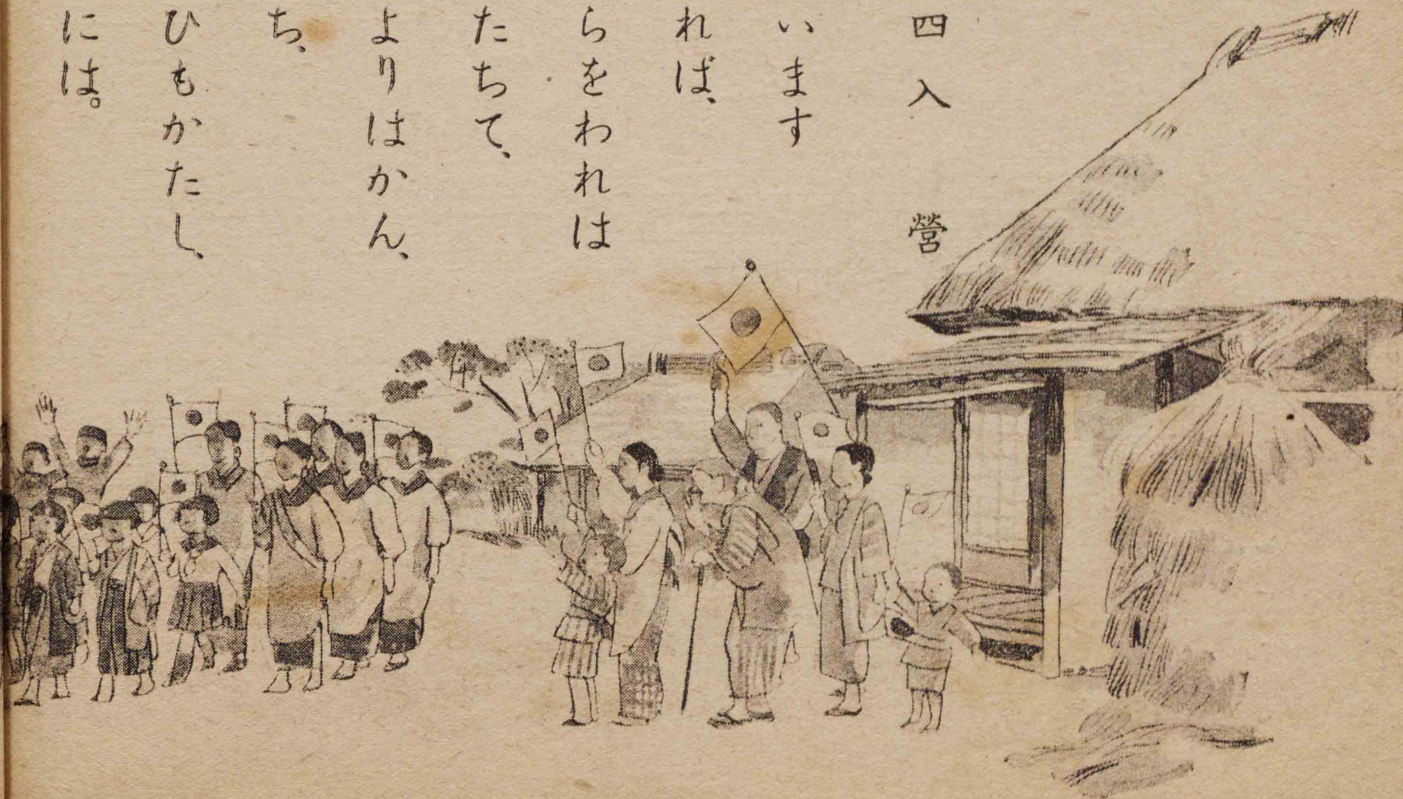 四 入 營
います
れば、
らをわれは
たちて、
よりはかん、
ち、
ひもかたし、
には。